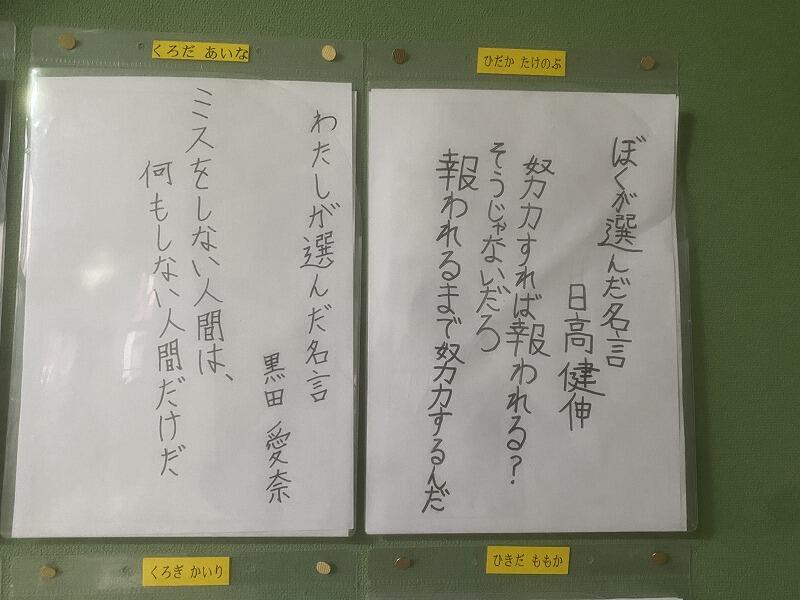 くろだ あいな
わたしが選んだ名言
黒田 愛奈
ミスをしない人間は、
何もしない人間だけだ
ひだか たけのぶ
ぼくが選んだ名言
日高健伸
努力すれば報われる?
そうじゃないだろ
報われるまで努力するんだ
くろぎ かいり
ひきだ ももか